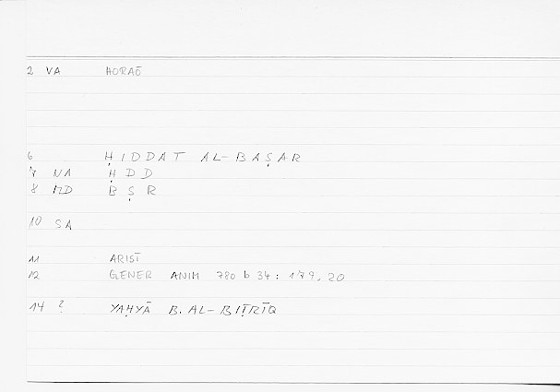 2 VA HORAŌ
6 ḤIDDAT AL-BAṢAR
7 NA ḤDD
8 MD BṢR
10 SA
11 ARIST
12 GENER ANIM 780 b 34 : 179.20
14 ? YAḤYĀ B. AL-BIṬRĪQ